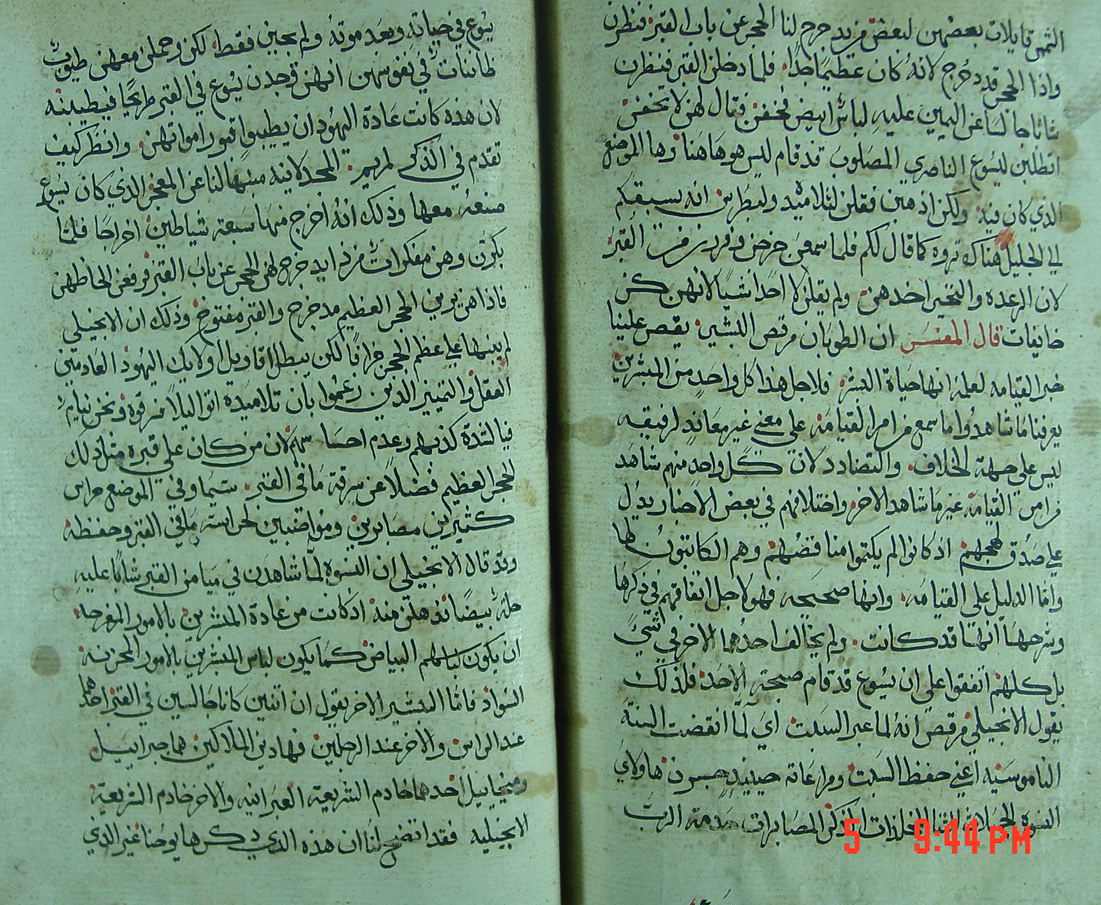 الشمس قايلات بعضهن لبعض من يدحرج لنا الحجر عن باب القبر فنظرن
واذا الحجر قد دحرج لانه كان عظيما جدا فلما دخلن القبر فنظرن
شابا جالسا عن اليمين عليه لباس ابيض فخفن فقال لهن لا تخفن
اتطلبن ليسوع الناصري المصلوب قد قام ليس هو هاهنا وها الموضع
الذي كان فيه ولكن اذهبن فقلن لتلاميذه ولبطرس انه يسبقكم
الى الجليل هناك تروه كما قال لكم فلما سمعن خرجن وفررن من القبر
لان الرعده والتحير اخذهن ولم يقلن لاحد شيا لانهن كن
خايفات قال المفسر ان الطوبان مرقص البشير يقص علينا
خبر القيامه لعلمه انها حياة البشر فلاجل هذا كل واحد من المبشرين
يعرفنا ما شاهد وما سمع من امر القيامة على معنى غير معاند لرفيقه
ليس على جهة الخلاف والتضادد لان كل واحد منهم شاهد
من امر القيامة غير ما شاهد الاخر واختلافهم في بعض الاخبار يدل
على صدق لهجهم اذ كانوا لم يكتموا مناقضهم وهم الكاتبون لها
واما الدليل على القيامه وانها صحيحه فهو لاجل اتفاقهم في ذكرها
وشرحها انها قد كانت ولم يخالف احدهما الاخر في شي
بل كلهم اتفقوا على ان يسوع قد قام صبيحة الاحد فلذلك
يقول الانجيلي مرقص انه لما عبر السبت اي لما انقضت السنة
الناموسيه اعني حفظ السبت ومراعاته حينيذ هاولاي
النسوه المصابرات خدمة الرب
يسوع في حياته وبعد موته ولم يجين فقط لكن وحملن معهن طيوب
ظانات في نفوسهن انهن يجدن يسوع في القبر طريحا فيطيبنه
لان هذه كانت عادة اليهود ان يطيبوا قبور امواتهن وانظر كيف
تقدم في الذكر لمريم المجدلانية منبها لنا عن المعجز الذي كان يسوع
صنعه معها وذلك انه اخرج منها سبعة شياطين اخراجا فلما
بكرن وهن مفكرات من ذا يدحرج لهن الحجر عن باب القبر رفعن الحاظهن
فاذا هن يرين الحجر العظيم مدحرج والقبر مفتوح وذلك ان الانجيلي
لم ينبها على عظم الحجر جزافا لكن ليبطل اقاويل اولايك اليهود العادمين
العقل والتمييز الذين زعموا بان تلاميذه اتوا ليلا سرقوه ونحن نيام
فيا لشدة كذبهم وعدم احساسهم لان من كان على قبره مثل ذلك
الحجر العظيم فضلا عن سرقة ما في القبر سيما وفي الموضع حراس
كثيرين مصادرين ومواضبين لحراسة ما في القبر وحفظه
وقد قال الانجيلي ان النسوه لما شاهدن في ميامن القبر شابا عليه
حلة بيضا ذهلن منه اذ كانت من عادة المبشرين بالامور المفرحه
ان يكون لباسهم البياض كما يكون لباس المبشرين بالامور المحزنه
السواد فاما البشير الاخر يقول ان اثنين كانا جالسين في القبر احدهما
عند الراس والاخر عند الرجلين فهاذين الملاكين هما جبراييل
وميخاييل احدهما خادم الشريعة العبرانيه والاخر خادم الشريعة
الانجيليه فقد اتضح لنا ان هذه الذي ذكرها يوحنا غير الذي
5 9:44 PM